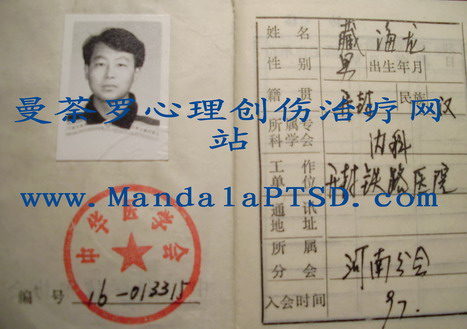 中华医学会
编号 16-013315
姓名 藏海龙
性别 男 出生年月
籍贯 开封 民族 汉
所属专
科学会 内科
工作
单位 开封铁路医院
通讯
地址
所属
分会 河南分会
入会时间 97.
曼荼罗心理创伤治疗网
站
www.MandalaPTSD.com